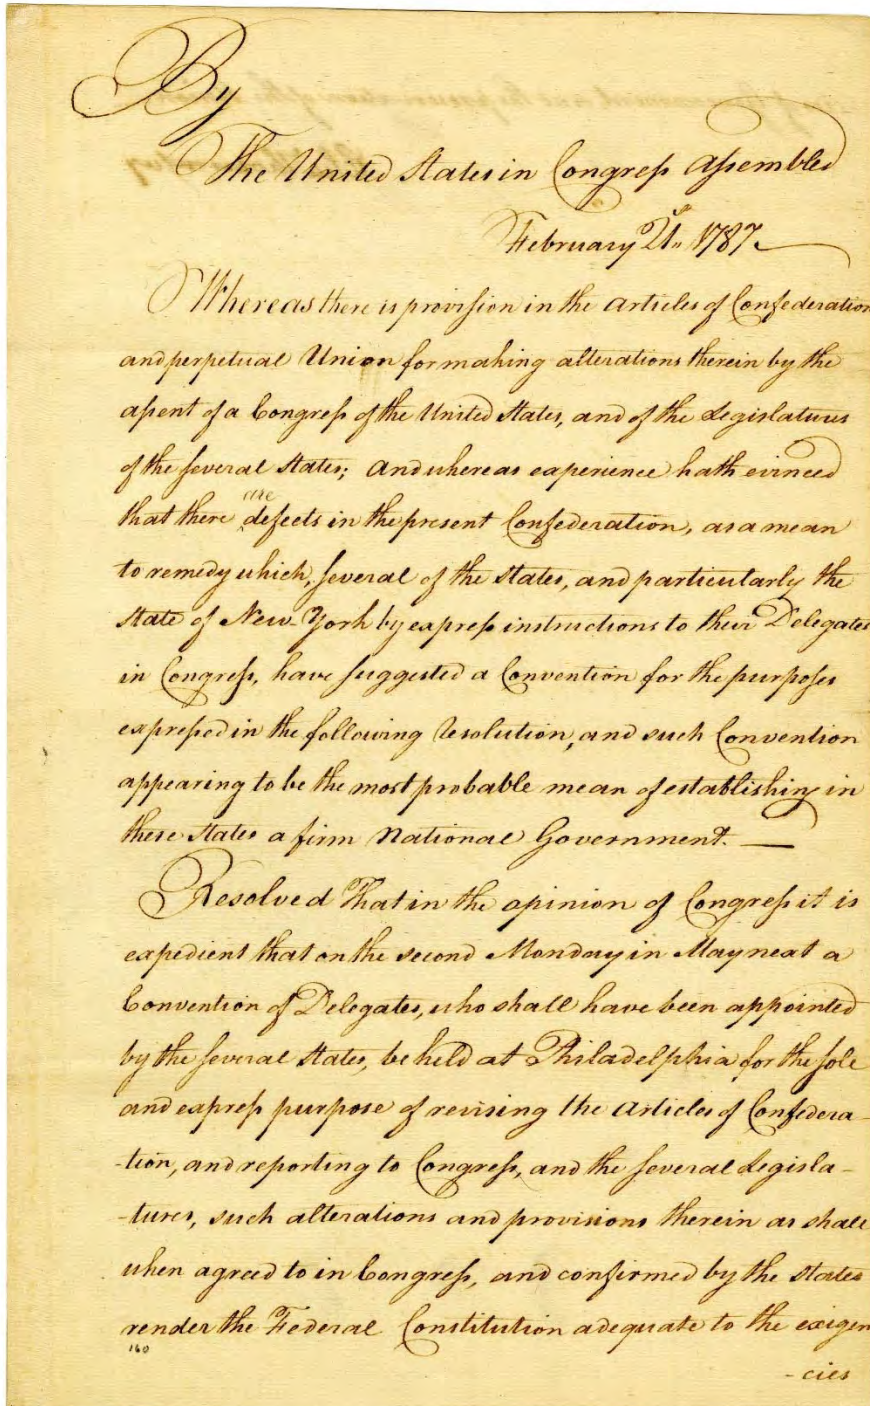 By
The United States in Congress assembled
February 21st 1787.
Whereas there is provision in the articles of Confederation
and perpetual Union for making alterations therein by the
assent of a Congress of the United States, and of the Legislatures
of the several States; and whereas experience hath evinced
that there are defects in the present Confederation, as a mean
to remedy which, several of the States, and particularly the
State of New York by express instructions to their Delegates
in Congress, have suggested a Convention for the purposes
expressed in the following resolution, and such Convention
appearing to be the most probable mean of establishing in
these States a firm National Government. —
Resolved That in the opinion of Congress it is
expedient that on the second Monday in May next a
Convention of Delegates, who shall have been appointed
by the several States, be held at Philadelphia for the sole
and express purpose of revising the articles of Confedera-
-tion, and reporting to Congress, and the several Legisla-
-tures, such alterations and provisions therein as shall
when agreed to in Congress, and confirmed by the States
render the Federal Constitution adequate to the exigen
160
-cies